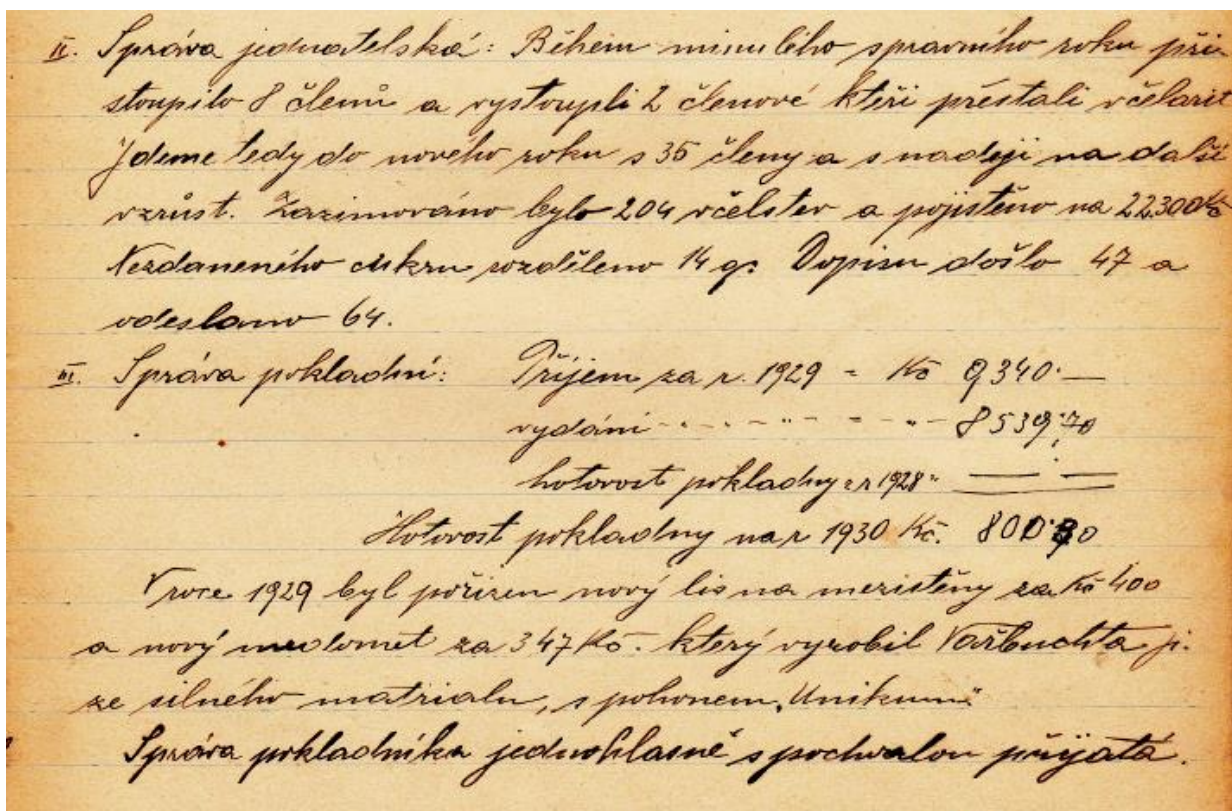 II. Správa jednatelská: Během minulého spravního roku při
stoupilo 8 členů a vystoupli 2 členové kteří přestali včelařit
Jdeme tedy do nového roku s 35 členy a s nadějí na další
vzrůst. Zazimováno bylo 204 včelstev a pojištěno na 22.300 Kč
Nezdaneného cukru rozděleno 14 q. Dopisu došlo 47 a
odeslano 64.
III. Správa pokladní: Příjem za r. 1929 = Kč 9340.—
vydání - - - - " - - " - 8539.70
hotovost pokladny z r 1928 " — . —
Hotovost pokladny na r 1930 Kč. 800.30
V roce 1929 byl pořízen nový lis na mezistěny za Kč 400
a nový medomet za 347 Kč. který vyrobil
ze silného matrialu, s pohonem „Unikum"
Správa pokladníka jednohlasně s pochvalou přijatá.